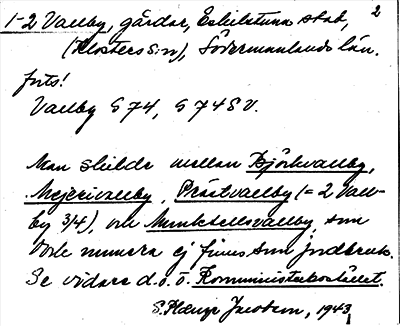 2
1-2 Vallby, gårdar, Eskilstuna stad,
(Klosters s:n), Södermanlands län.
forts!
Vallby G 74, G 74 SV.
Man skilde mellan Björkvallby,
Mejerivallby, Prästvallby (= 2 Vall-
by 3/4), och Munktellsvallby, som
dock numera ej finns som jordbruk.
Se vidare d.o. o. Komministerbostället.
Jacobson, 1943